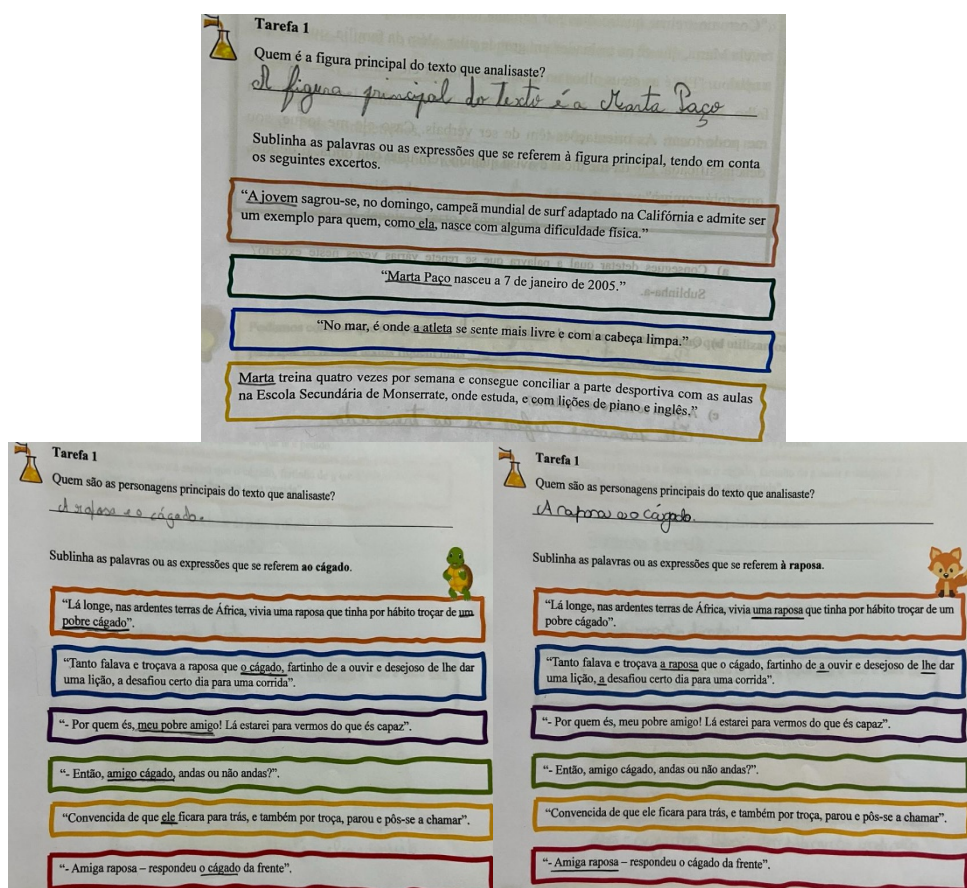 Tarefa 1
Quem é a figura principal do texto que analisaste?
A figura principal do Texto é a Marta Paço
Sublinha as palavras ou as expressões que se referem à figura principal, tendo em conta
os seguintes excertos.
“A jovem sagrou-se, no domingo, campeã mundial de surf adaptado na Califórnia e admite ser
um exemplo para quem, como ela, nasce com alguma dificuldade física.”
“Marta Paço nasceu a 7 de janeiro de 2005.”
“No mar, é onde a atleta se sente mais livre e com a cabeça limpa.”
Marta treina quatro vezes por semana e consegue conciliar a parte desportiva com as aulas
na Escola Secundária de Monserrate, onde estuda, e com lições de piano e inglês.”
Tarefa 1
Quem são as personagens principais do texto que analisaste?
A raposa e o cágado.
Sublinha as palavras ou as expressões que se referem ao cágado.
“Lá longe, nas ardentes terras de África, vivia uma raposa que tinha por hábito troçar de um
pobre cágado”.
“Tanto falava e troçava a raposa que o cágado, fartinho de a ouvir e desejoso de lhe dar
uma lição, a desafiou certo dia para uma corrida”.
“- Por quem és, meu pobre amigo! Lá estarei para vermos do que és capaz”.
“- Então, amigo cágado, andas ou não andas?”.
“Convencida de que ele ficara para trás, e também por troça, parou e pôs-se a chamar”.
“- Amiga raposa – respondeu o cágado da frente”.
Tarefa 1
Quem são as personagens principais do texto que analisaste?
A raposa e o cágado.
Sublinha as palavras ou as expressões que se referem à raposa.
“Lá longe, nas ardentes terras de África, vivia uma raposa que tinha por hábito troçar de um
pobre cágado”.
“Tanto falava e troçava a raposa que o cágado, fartinho de a ouvir e desejoso de lhe dar
uma lição, a desafiou certo dia para uma corrida”.
“- Por quem és, meu pobre amigo! Lá estarei para vermos do que és capaz”.
“- Então, amigo cágado, andas ou não andas?”.
“Convencida de que ele ficara para trás, e também por troça, parou e pôs-se a chamar”.
“- Amiga raposa – respondeu o cágado da frente”.